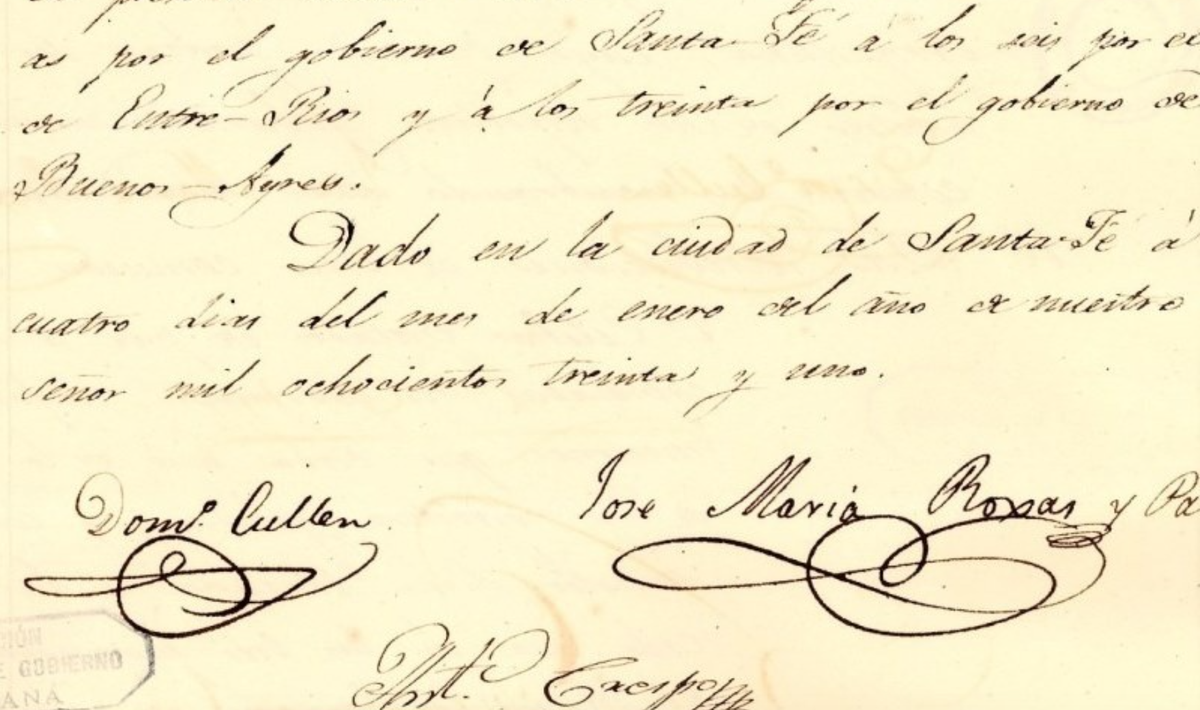 as por el gobierno de Santa-Fé á los seis por el
de Entre-Rios y á los treinta por el gobierno de
Buenos-Ayres.
Dado en la ciudad de Santa-Fé á
cuatro dias del mes de enero del año de nuestro
señor mil ochocientos treinta y uno.
Domº. Cullen
Jose Maria Roxas y Pa
Antº. Crespo
IÓN
E GOBIERNO
ANÁ